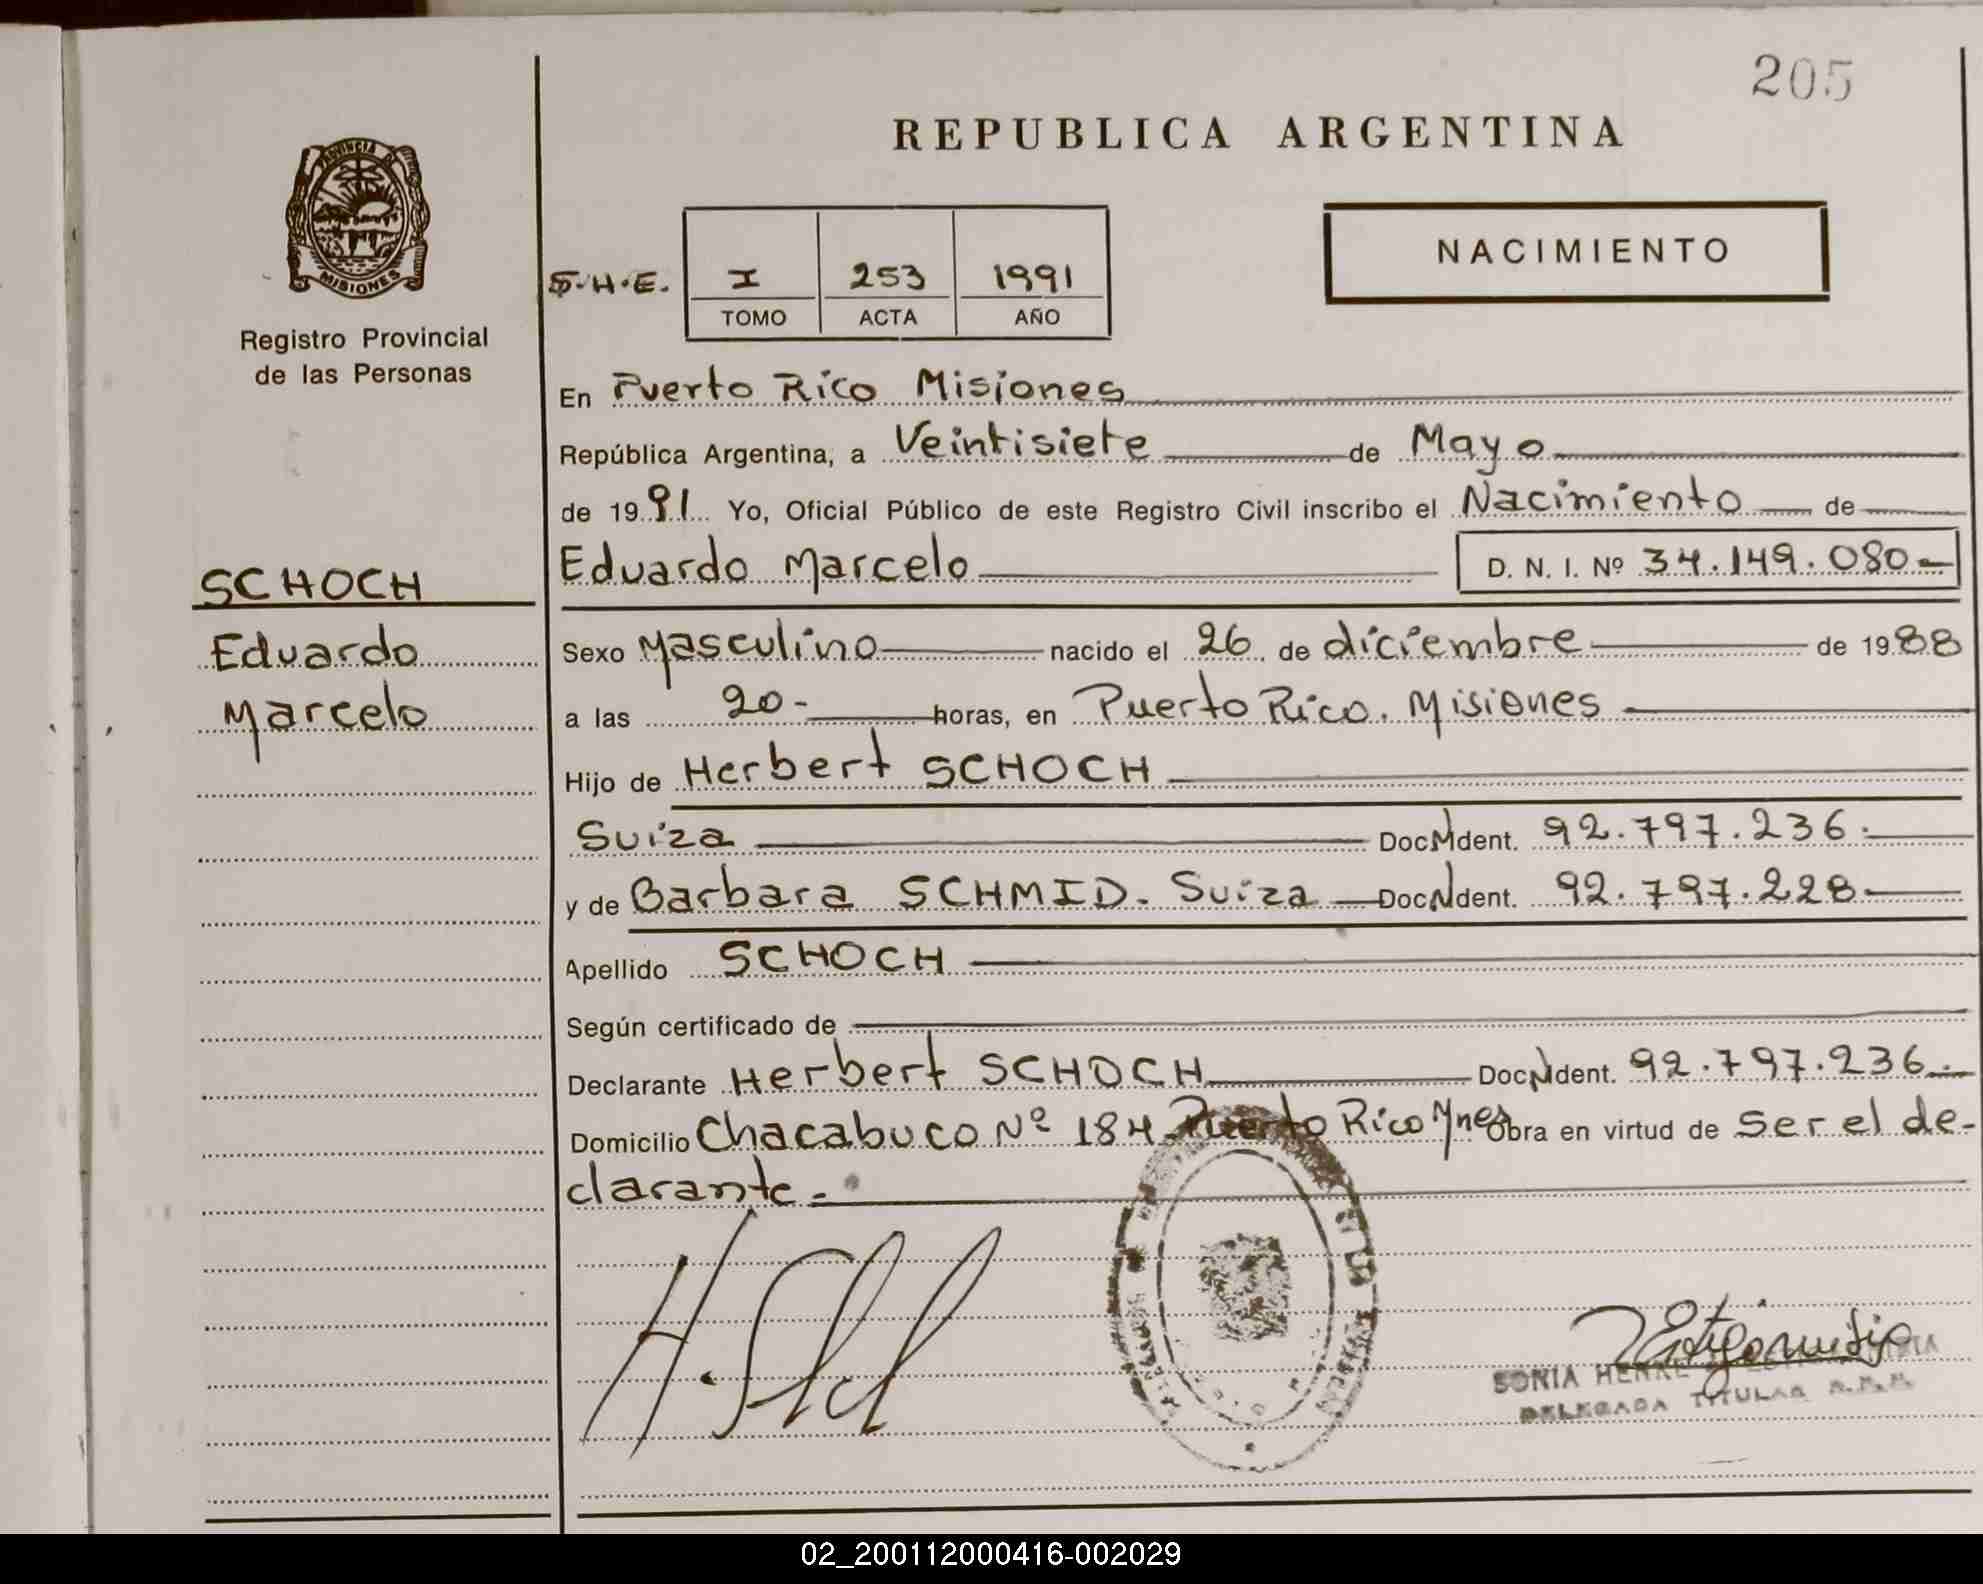 205
REPUBLICA ARGENTINA
PROVINCIA DE
MISIONES
Registro Provincial
de las Personas
S.H.E.
I 253 1991
TOMO ACTA AÑO
NACIMIENTO
En Puerto Rico Misiones
República Argentina, a Veintisiete de Mayo
de 1991 Yo, Oficial Público de este Registro Civil inscribo el Nacimiento de
SCHOCH
Eduardo
Marcelo
Eduardo Marcelo D. N. I. Nº 34.149.080-
Sexo Masculino nacido el 26 de diciembre de 1988
a las 20- horas, en Puerto Rico. Misiones
Hijo de Herbert SCHOCH
Suiza Doc N Ident. 92.797.236.
y de Barbara SCHMID. Suiza Doc N Ident. 92.797.228
Apellido SCHOCH
Según certificado de
Declarante Herbert SCHOCH Doc N Ident. 92.797.236.
Domicilio Chacabuco Nº 184 Puerto Rico Mnes Obra en virtud de Ser el de-
clarante.-
H. Sch
SONIA
DELEGADA TITULAR R.P.P.
02_200112000416-002029